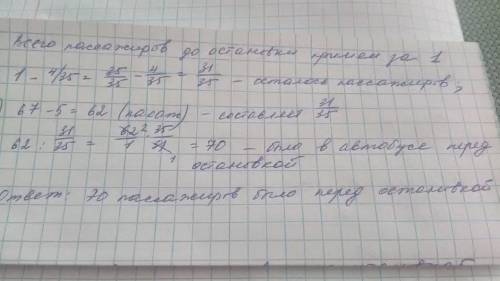 Всего пассажиров до остановки примем за 1
1 - 4/35 = 35/35 - 4/35 = 31/35 - осталось пассажиров,
67 - 5 = 62 (пасаж) - составляет 31/35
62 : 31/35 = 62² 35 / 1 31 1 = 70 - было в автобусе перед
остановкой
Ответ: 70 пассажиров было перед остановкой